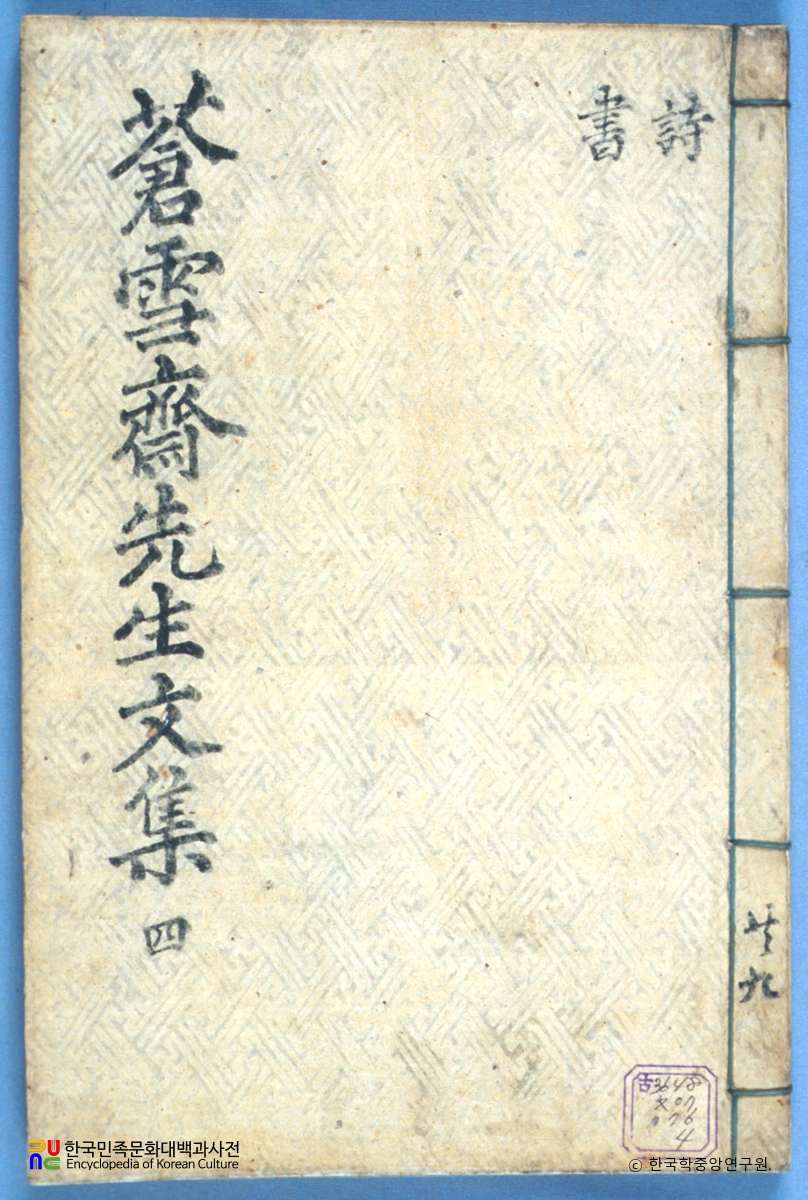 詩
書
蒼雪齋先生文集 四
共九
古3648
文07
076
4
한국민족문화대백과사전
Encyclopedia of Korean Culture
ⓒ 한국학중앙연구원.